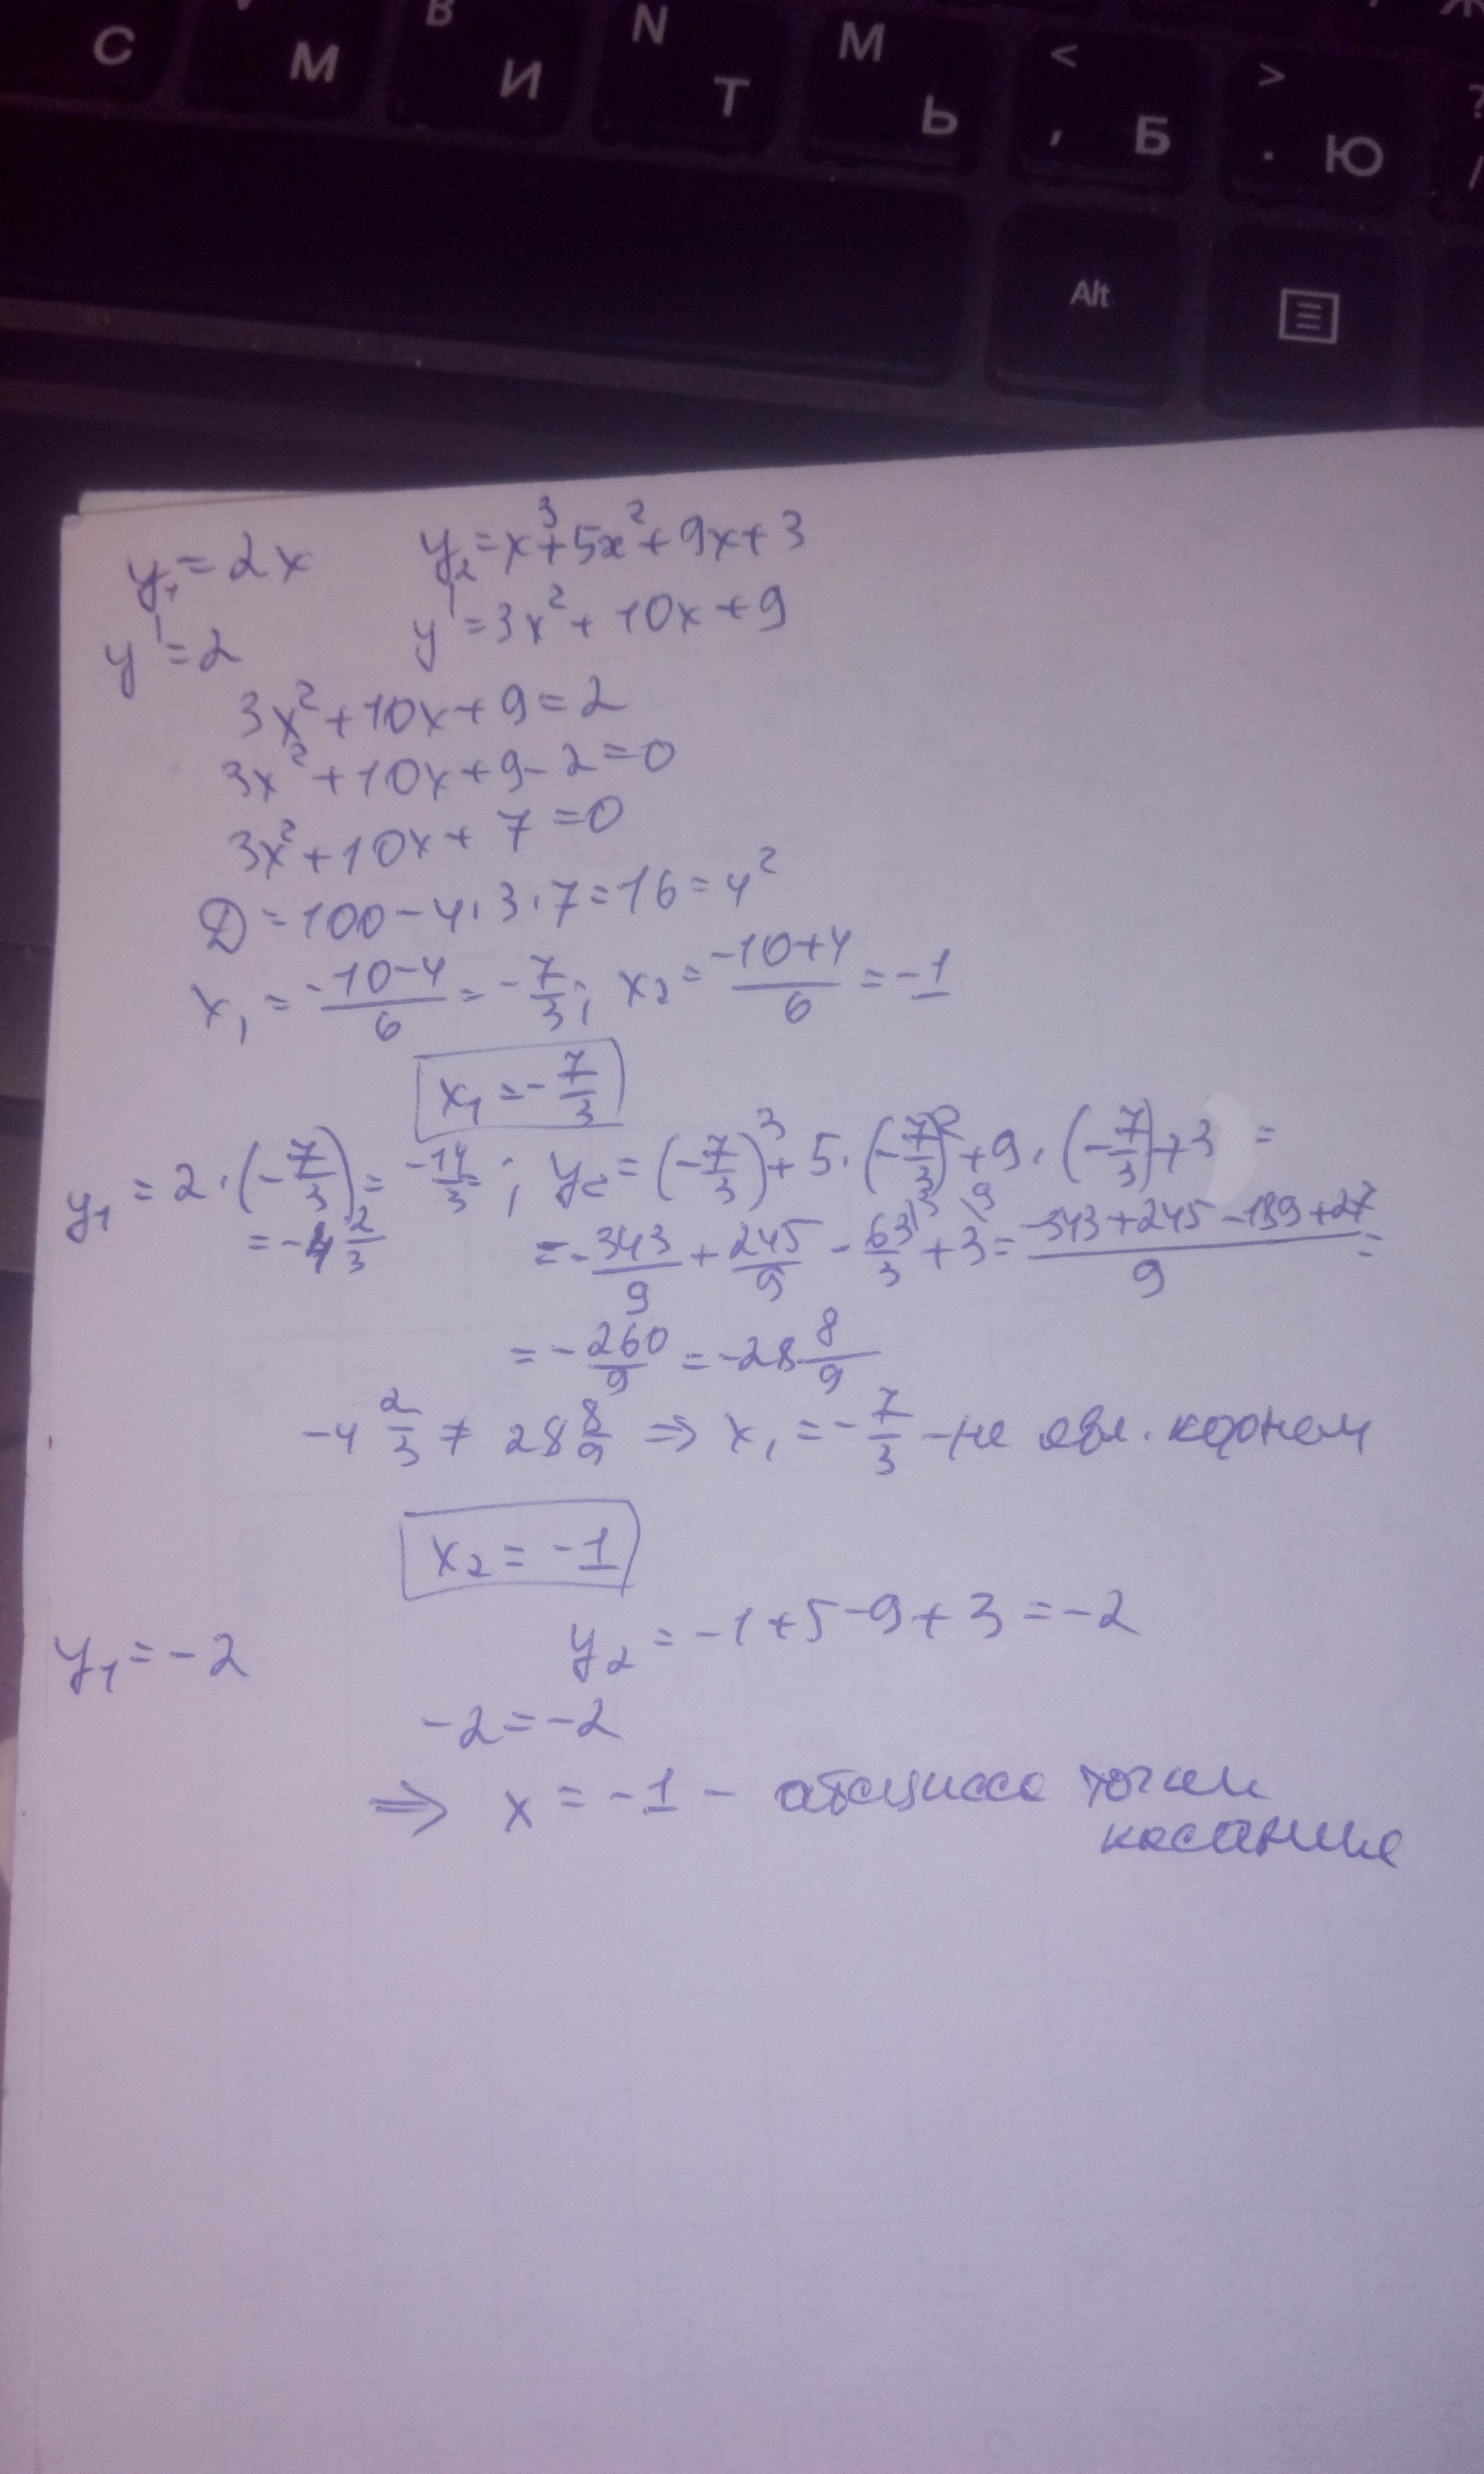 C M B И N T M Ь < , Б > . Ю ? /
Alt
y₁ = 2x y₂ = x³ + 5x² + 9x + 3
y' = 2 y' = 3x² + 10x + 9
3x² + 10x + 9 = 2
3x² + 10x + 9 - 2 = 0
3x² + 10x + 7 = 0
D = 100 - 4 · 3 · 7 = 16 = 4²
x₁ = (-10-4)/6 = -7/3; x₂ = (-10+4)/6 = -1
x₁ = -7/3
y₁ = 2 · (-7/3) = -14/3; y₂ = (-7/3)³ + 5 · (-7/3)² + 9 · (-7/3) + 3 =
= -4 2/3 = -343/9 + 245/9 - 63/3 \3 + 3 \9 = (-343 + 245 - 189 + 27)/9 =
= -260/9 = -28 8/9
-4 2/3 ≠ 28 8/9 ⇒ x₁ = -7/3 - не явл. корнем
x₂ = -1
y₁ = -2 y₂ = -1 + 5 - 9 + 3 = -2
-2 = -2
⇒ x = -1 - абсцисса точки
касания